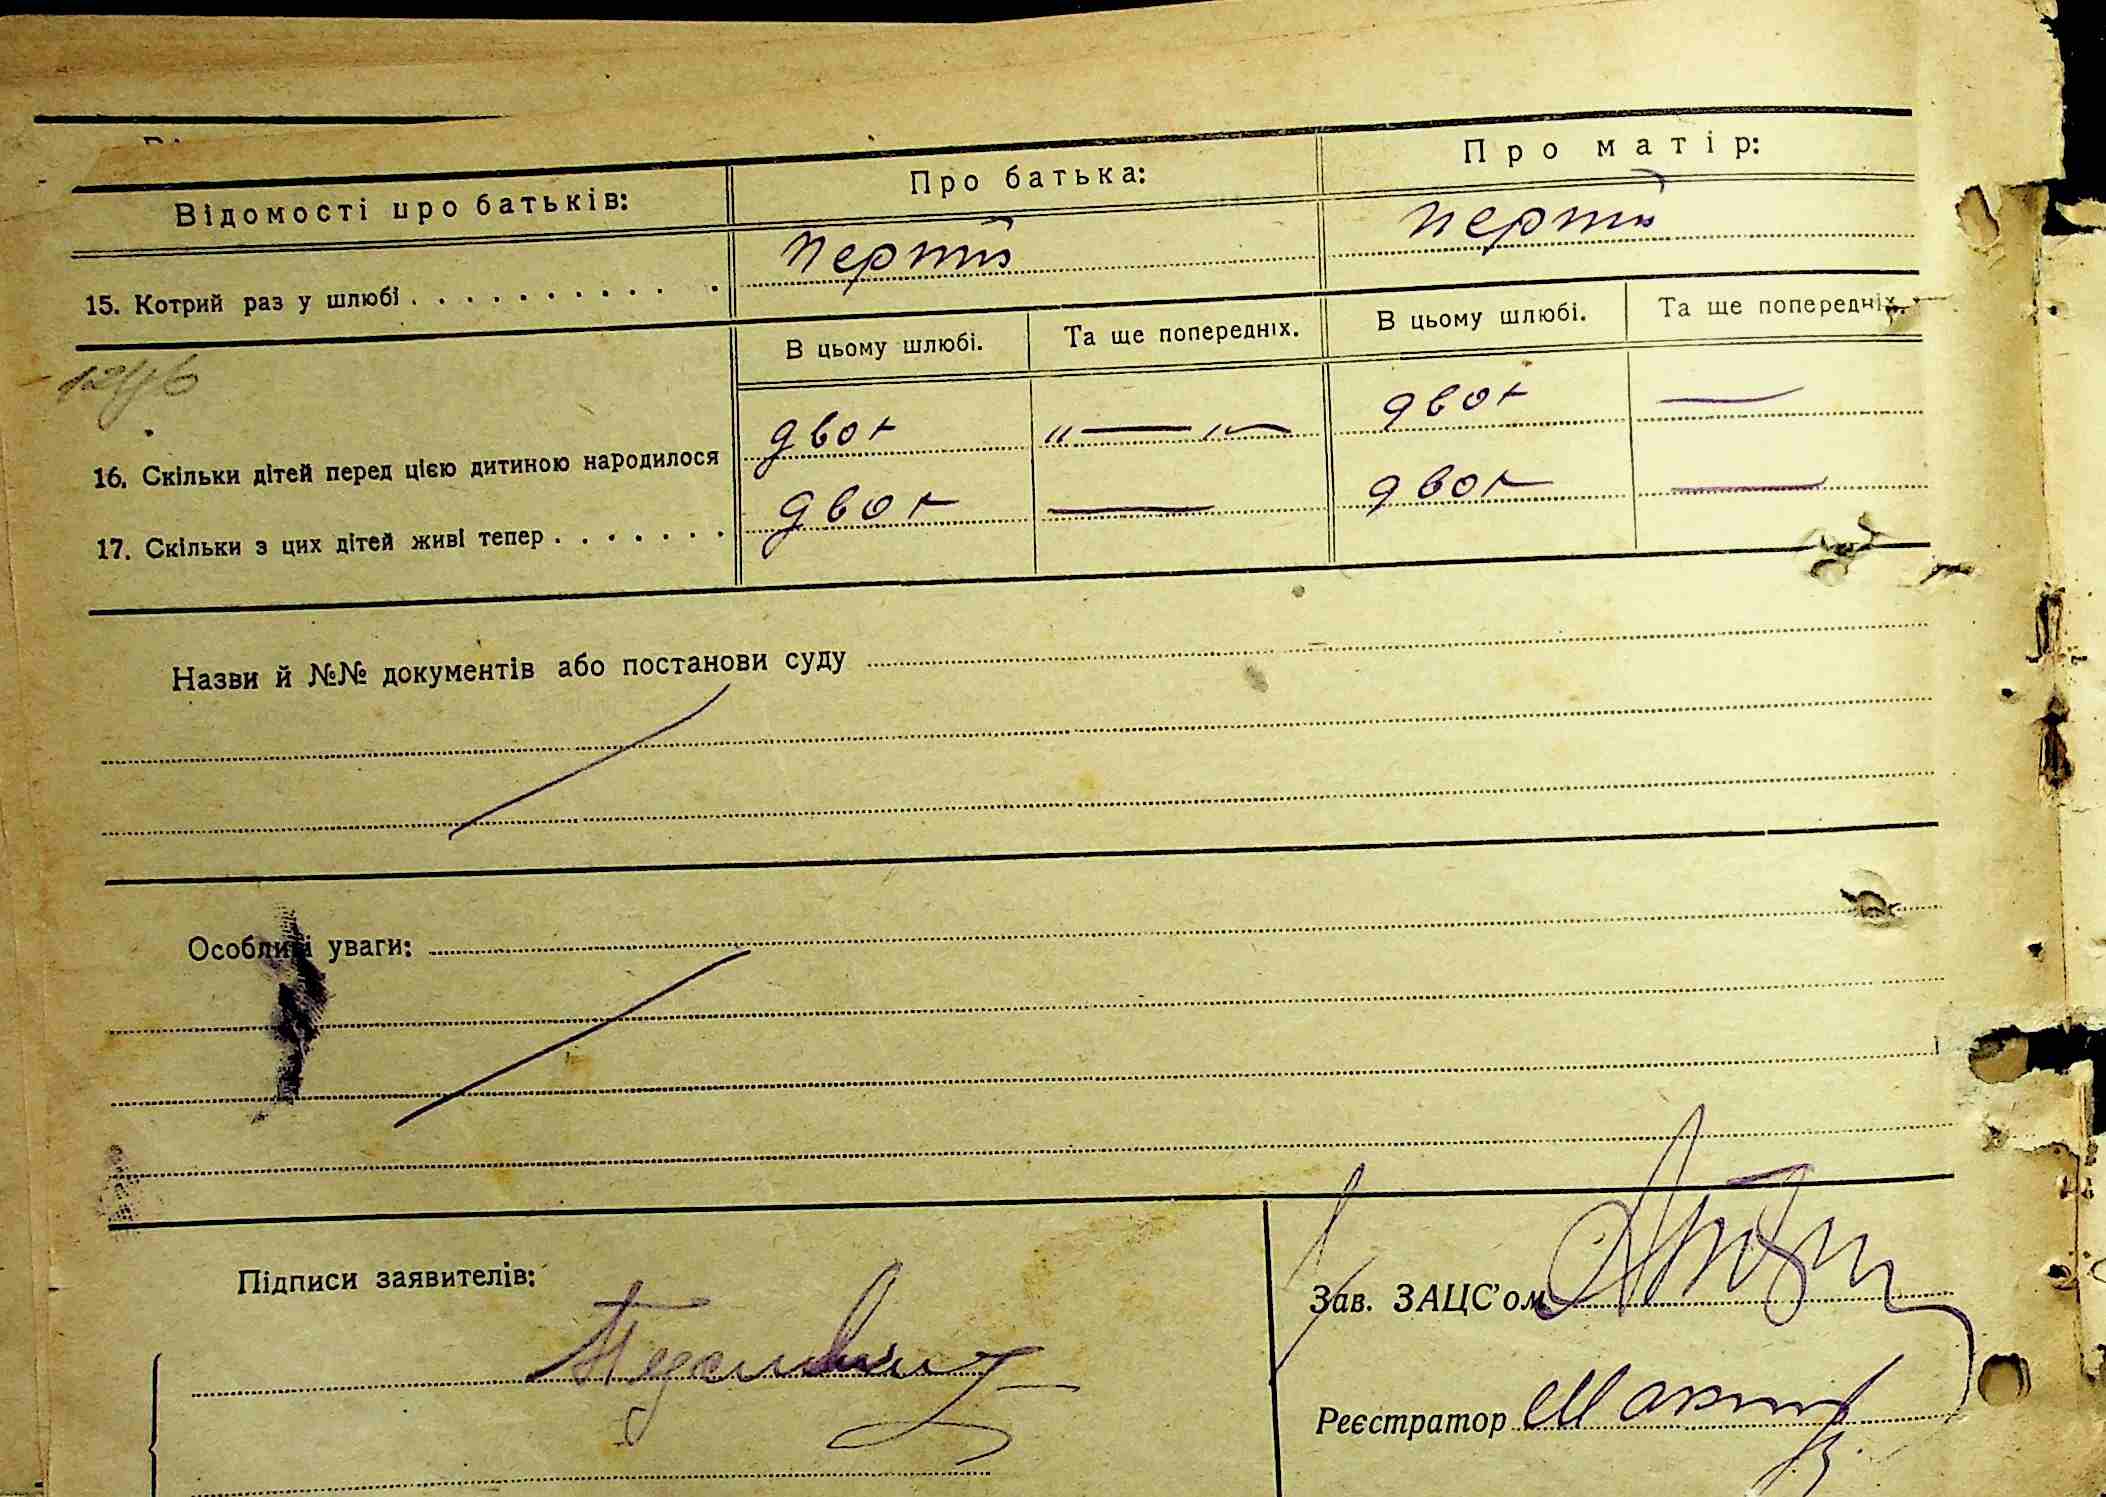 Відомості про батьків: Про батька: Про матір:
15. Котрий раз у шлюбі . . . . . . . . . . . . перший перший
В цьому шлюбі. Та ще попередніх. В цьому шлюбі. Та ще попередніх.
16. Скільки дітей перед цією дитиною народилося двоє "—"— двоє —
17. Скільки з цих дітей живі тепер . . . . . . . двоє — двоє —
Назви й №№ документів або постанови суду
Особливі уваги:
Підписи заявителів:
Зав. ЗАЦС'ом
Реєстратор